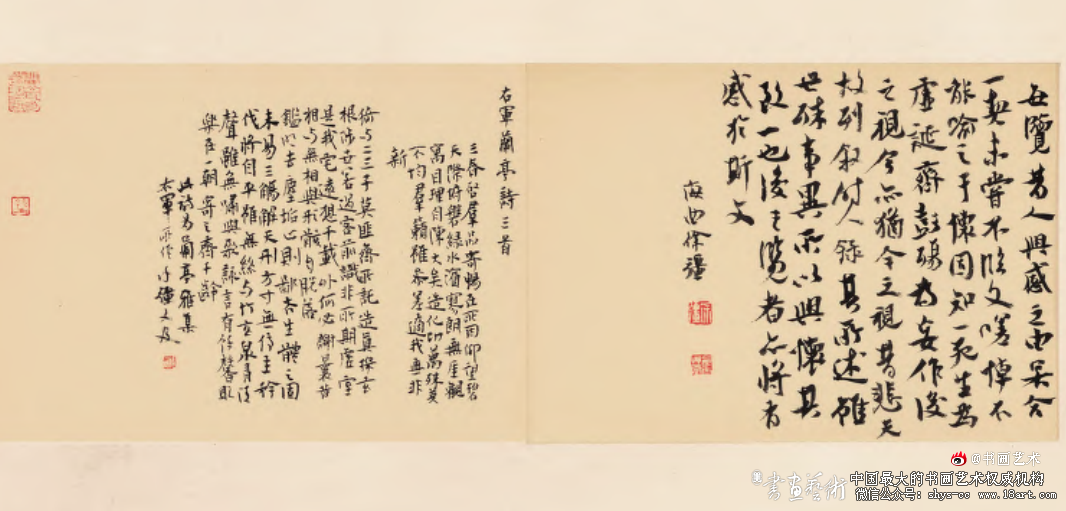 每覽昔人興感之由若合
一契未嘗不臨文嗟悼不
能喻之于懷固知一死生為
虛誕齊彭殤為妄作後
之視今亦猶今之視昔悲夫
故列敘時人錄其所述雖
世殊事異所以興懷其
致一也後之覽者亦將有
感於斯文
海曲徐
右軍蘭亭詩三首
三春啟羣品寄暢在所因仰望碧
天際俯磐綠水濱寥朗無厓觀
寓目理自陳大矣造化功萬殊莫
不均羣籟雖參差適我無非
新
猗與二三子莫匪齊所託造真探玄
根涉世若過客前識非所期虛室
是我宅遠想千載外何必謝曩昔
相與無相與形骸自脫落
鑑明去塵垢止則鄙吝生體之固
未易三觴解天刑方寸無停主矜
伐將自平雖無絲與竹玄泉有清
聲雖無嘯與歌詠言有餘馨取
樂在一朝寄之齊千齡
此詩為蘭亭雅集
右軍所作 又及
@书画艺术
書畫藝術
中国最大的书画艺术权威机构
微信公众号: shys-cc www.18art.com